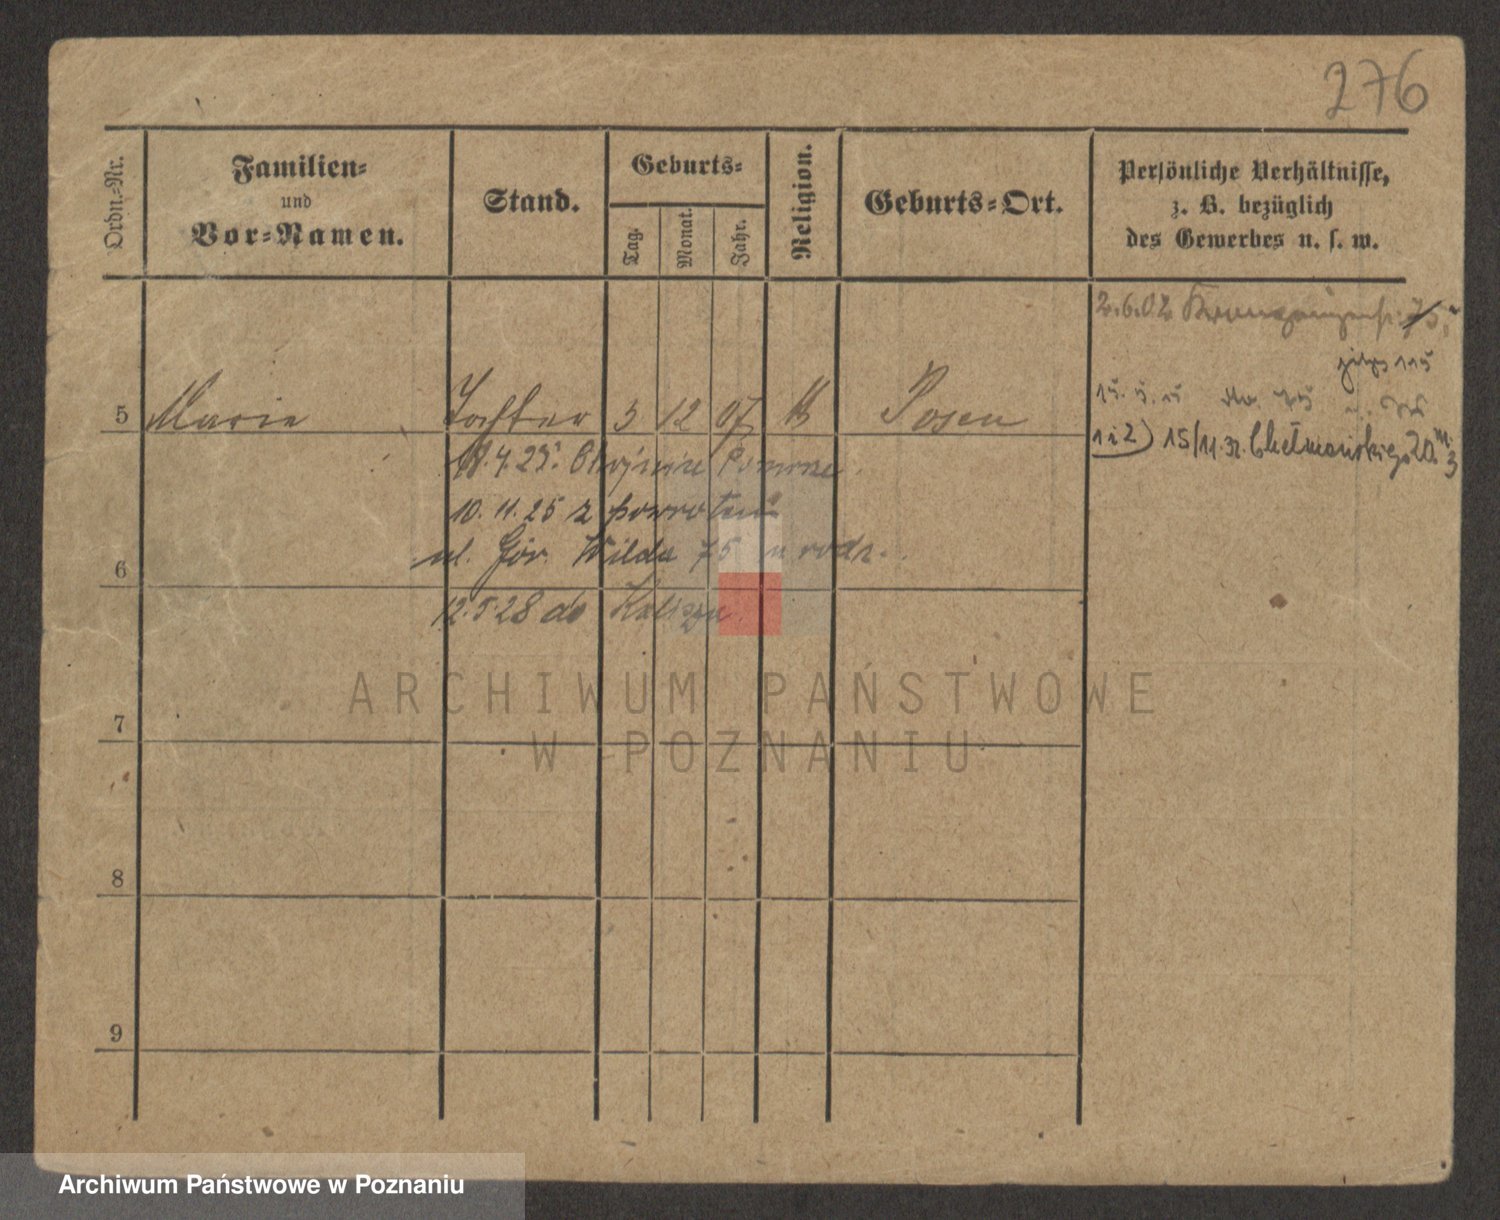 276
Ordn.-Nr.
Familien-
und
Vor-Namen.
Stand.
Geburts-
Tag.
Monat.
Jahr.
Religion.
Geburts-Ort.
Persönliche Verhältnisse,
z. B. bezüglich
des Gewerbes u. s. w.
2.6.02 75
115
5 Marie Tochter 3 12 07 k Posen
15. 5. 15 75
1 i 2) 15/11.32. Chełmońskiego 20 m. 3
18.4.25.
10. 11. 25 z powrotem
6
ul. Gór. Wilda 75 u rodz.
12.5.28 do Kalisza.
7
8
9
ARCHIWUM PAŃSTWOWE
W POZNANIU
Archiwum Państwowe w Poznaniu